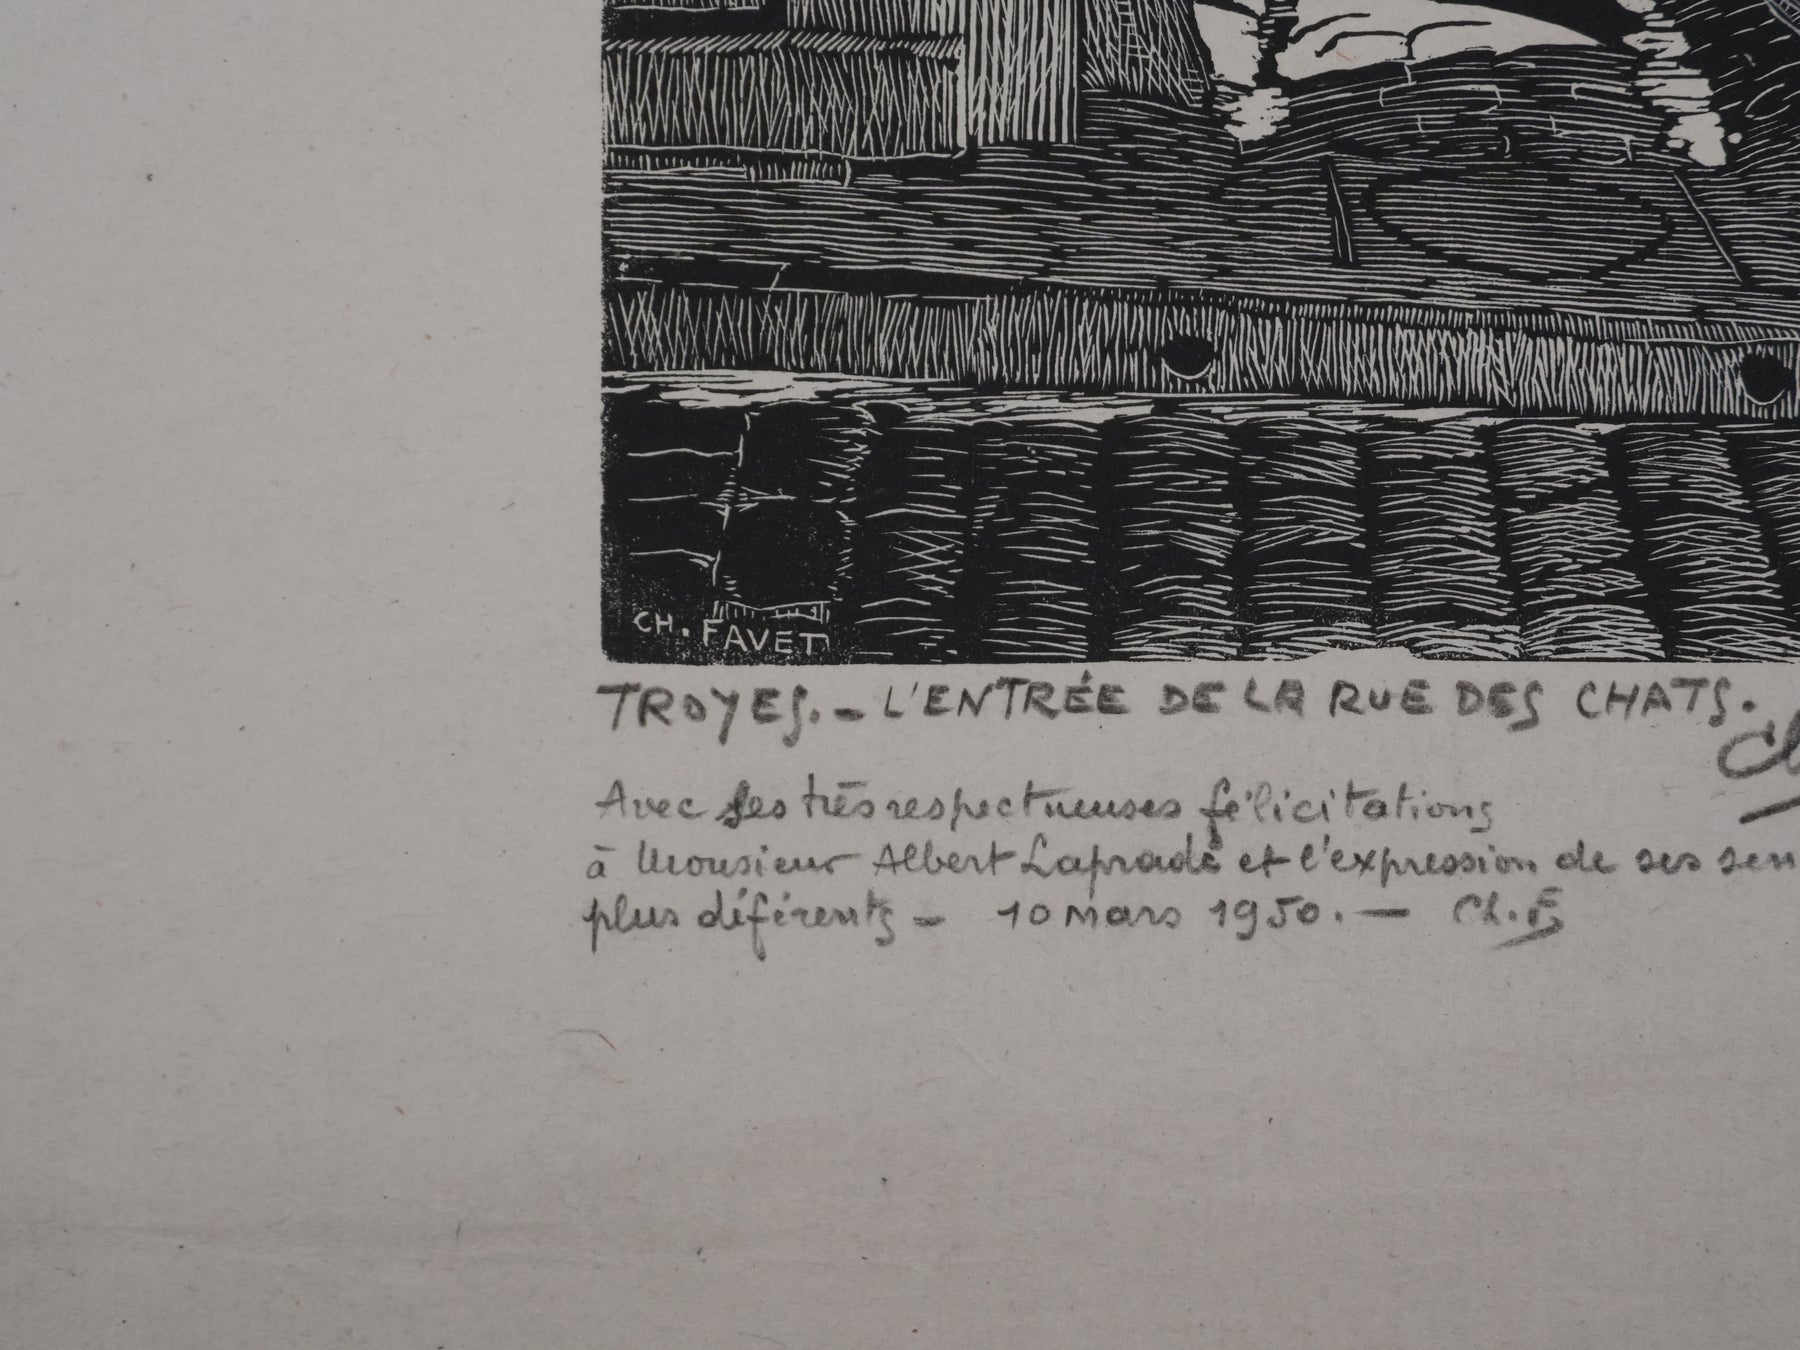 CH. FAVET
TROYES. - L'ENTRÉE DE LA RUE DES CHATS.
Ch
Avec ses très respectueuses félicitations
à Monsieur Albert Laprade et l'expression de ses sen
plus déférents - 10 mars 1950. - Ch. F